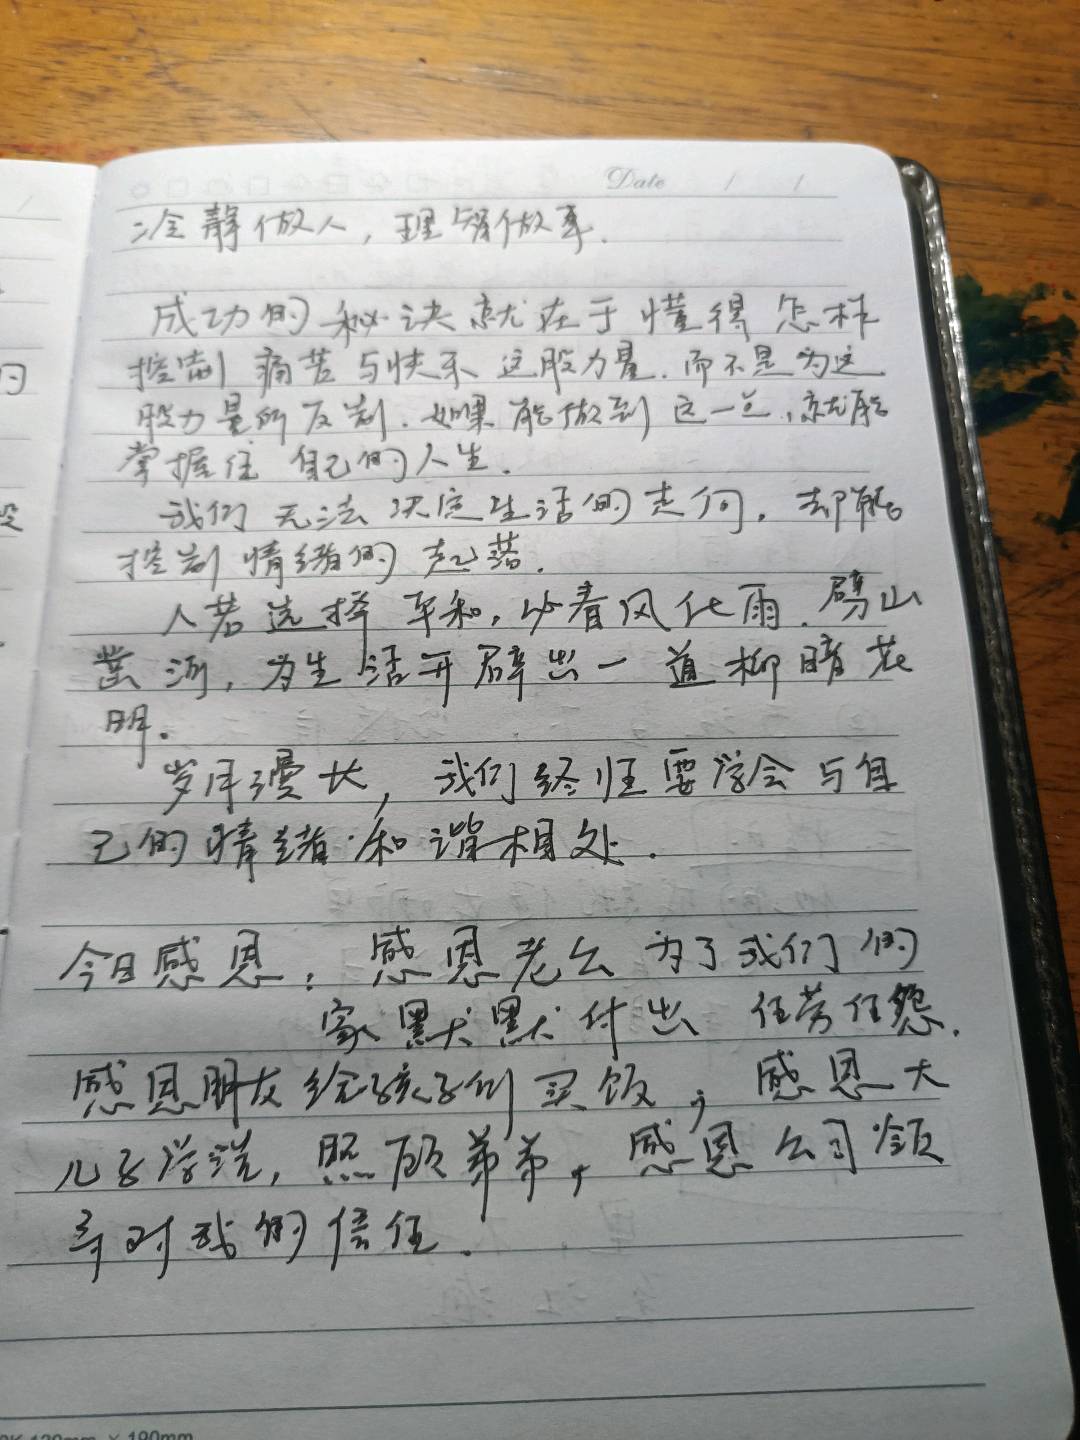 Date / /
冷静做人，理智做事.
成功的秘诀就在于懂得怎样
控制痛苦与快乐这股力量.而不是为这
股力量所反制.如果能做到这一点,就能
掌握住自己的人生.
我们无法决定生活的走向,却能
控制情绪的起落.
人若选择平和,必春风化雨.劈山
凿河,为生活开辟出一道柳暗花
明.
岁月漫长,我们终归要学会与自
己的情绪和谐相处.
今日感恩:感恩老公为了我们的
家默默付出 任劳任怨.
感恩朋友给孩子们买饭,感恩大
儿子学洗,照顾弟弟,感恩公司领
导对我的信任.
130mm × 190mm